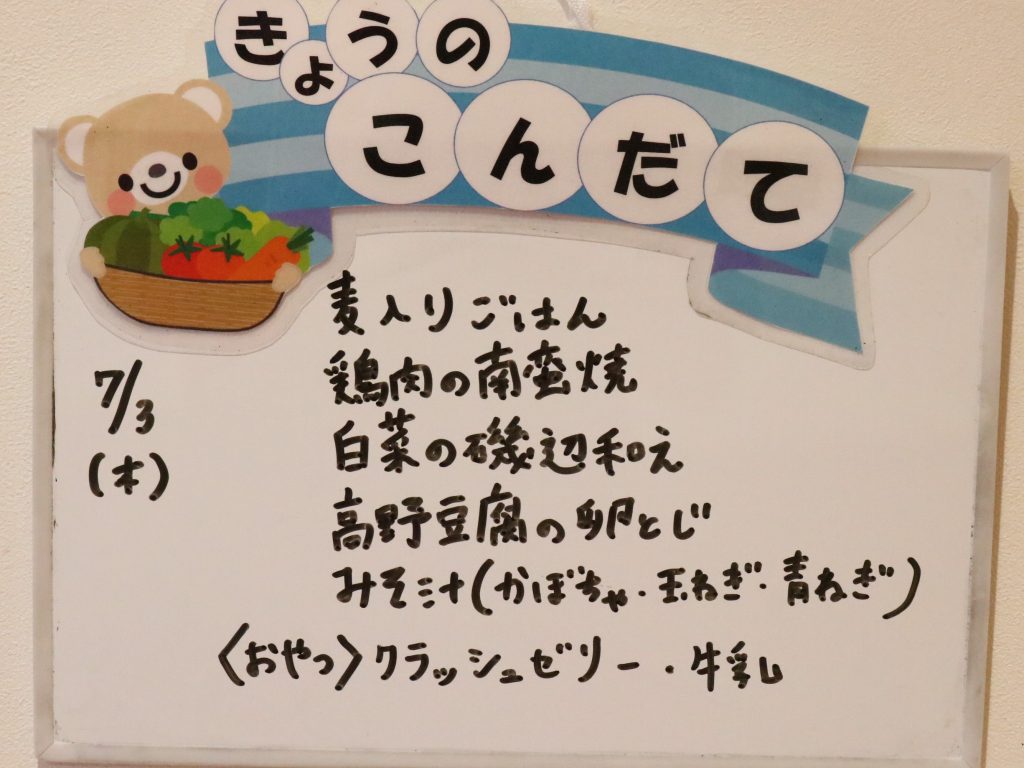 きょうの
こんだて
7/3
(木)
麦入りごはん
鶏肉の南蛮焼
白菜の磯辺和え
高野豆腐の卵とじ
みそ汁(かぼちゃ・玉ねぎ・青ねぎ)
〈おやつ〉クラッシュゼリー・牛乳